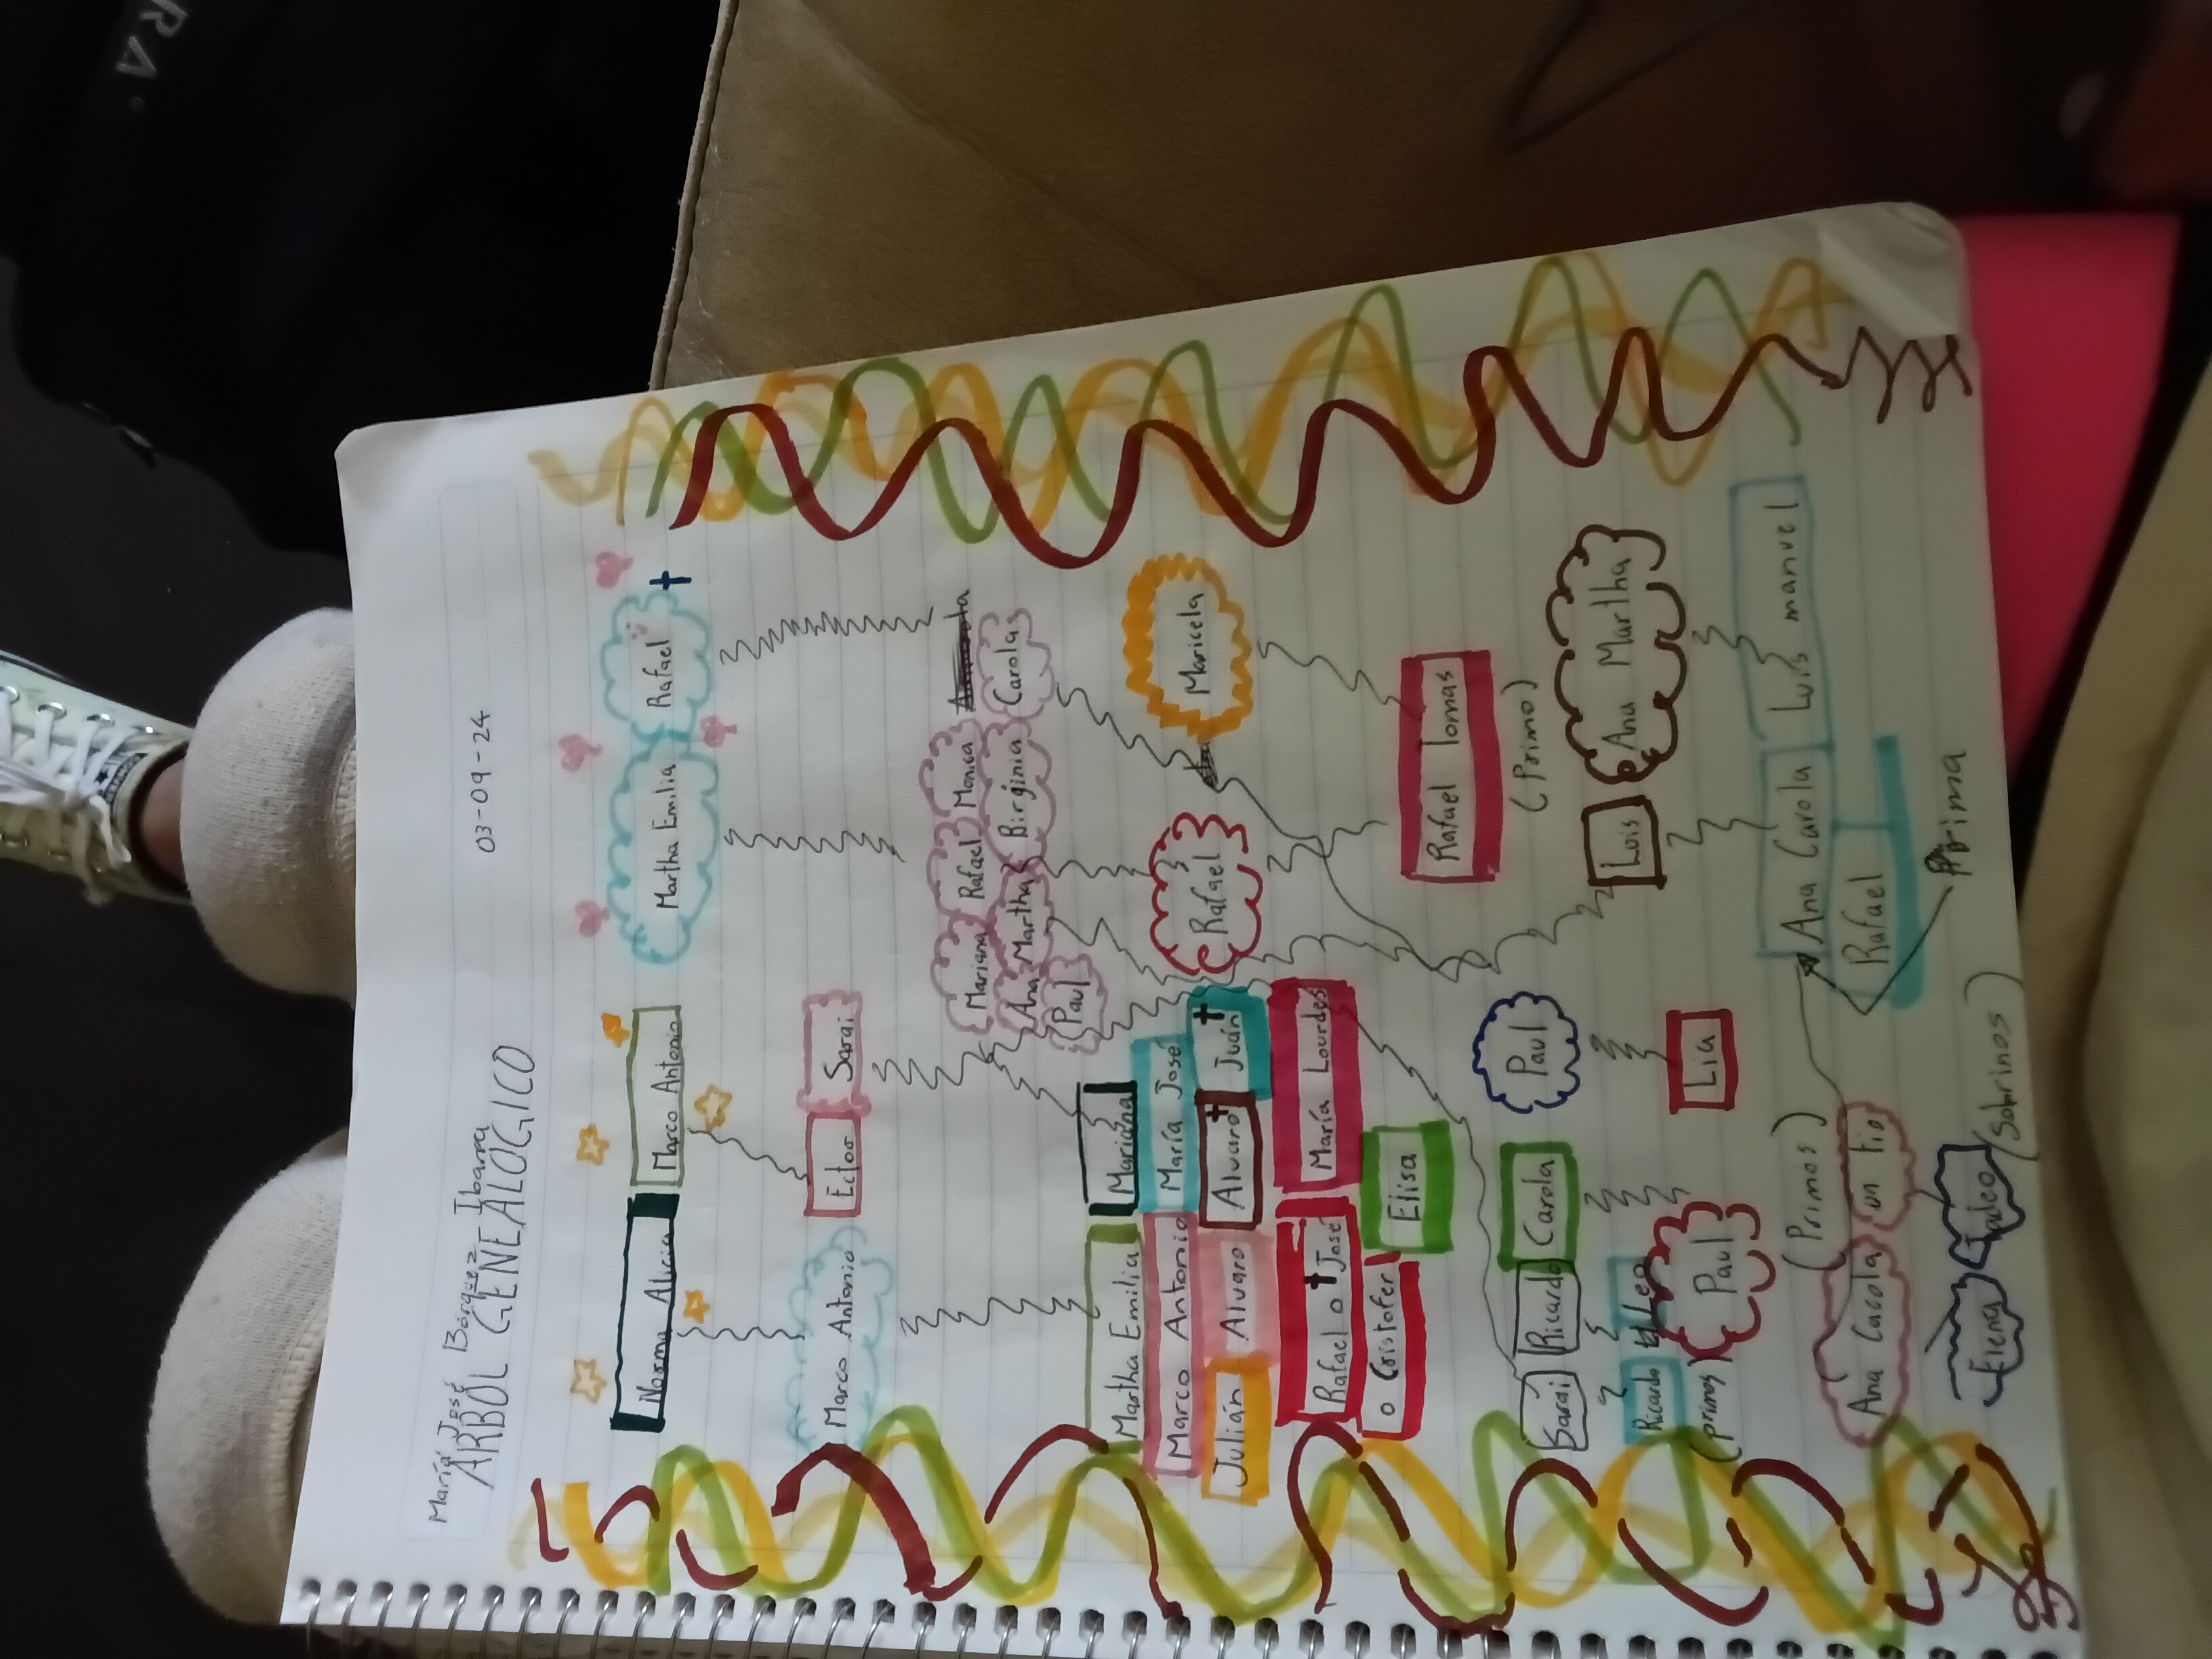 María José Bórquez Ibarra
03-09-24
ARBOL GENEALOGICO
Norma Alicia Marco Antonio Martha Emilia Rafael
Marco Antonio Ector Sarai
Mariana Rafael Monica
Ana Martha Birginia Carola
Paul
Martha Emilia Mariana
Marco Antonio María José
Julián Alvaro Alvaro Juán
Rafael Maricela
Rafael o José María Lourdes
o Cristofer Elisa
Rafael Tomas
(Primo)
Sarai Ricardo Carola Paul Lois Ana Martha
Ricardo Leo Paul Lia
(primos)
(Primos)
Ana Carola Luis manuel
Rafael
Ana Carola un tio
Prima
Elena Tadeo
(Sobrinos)